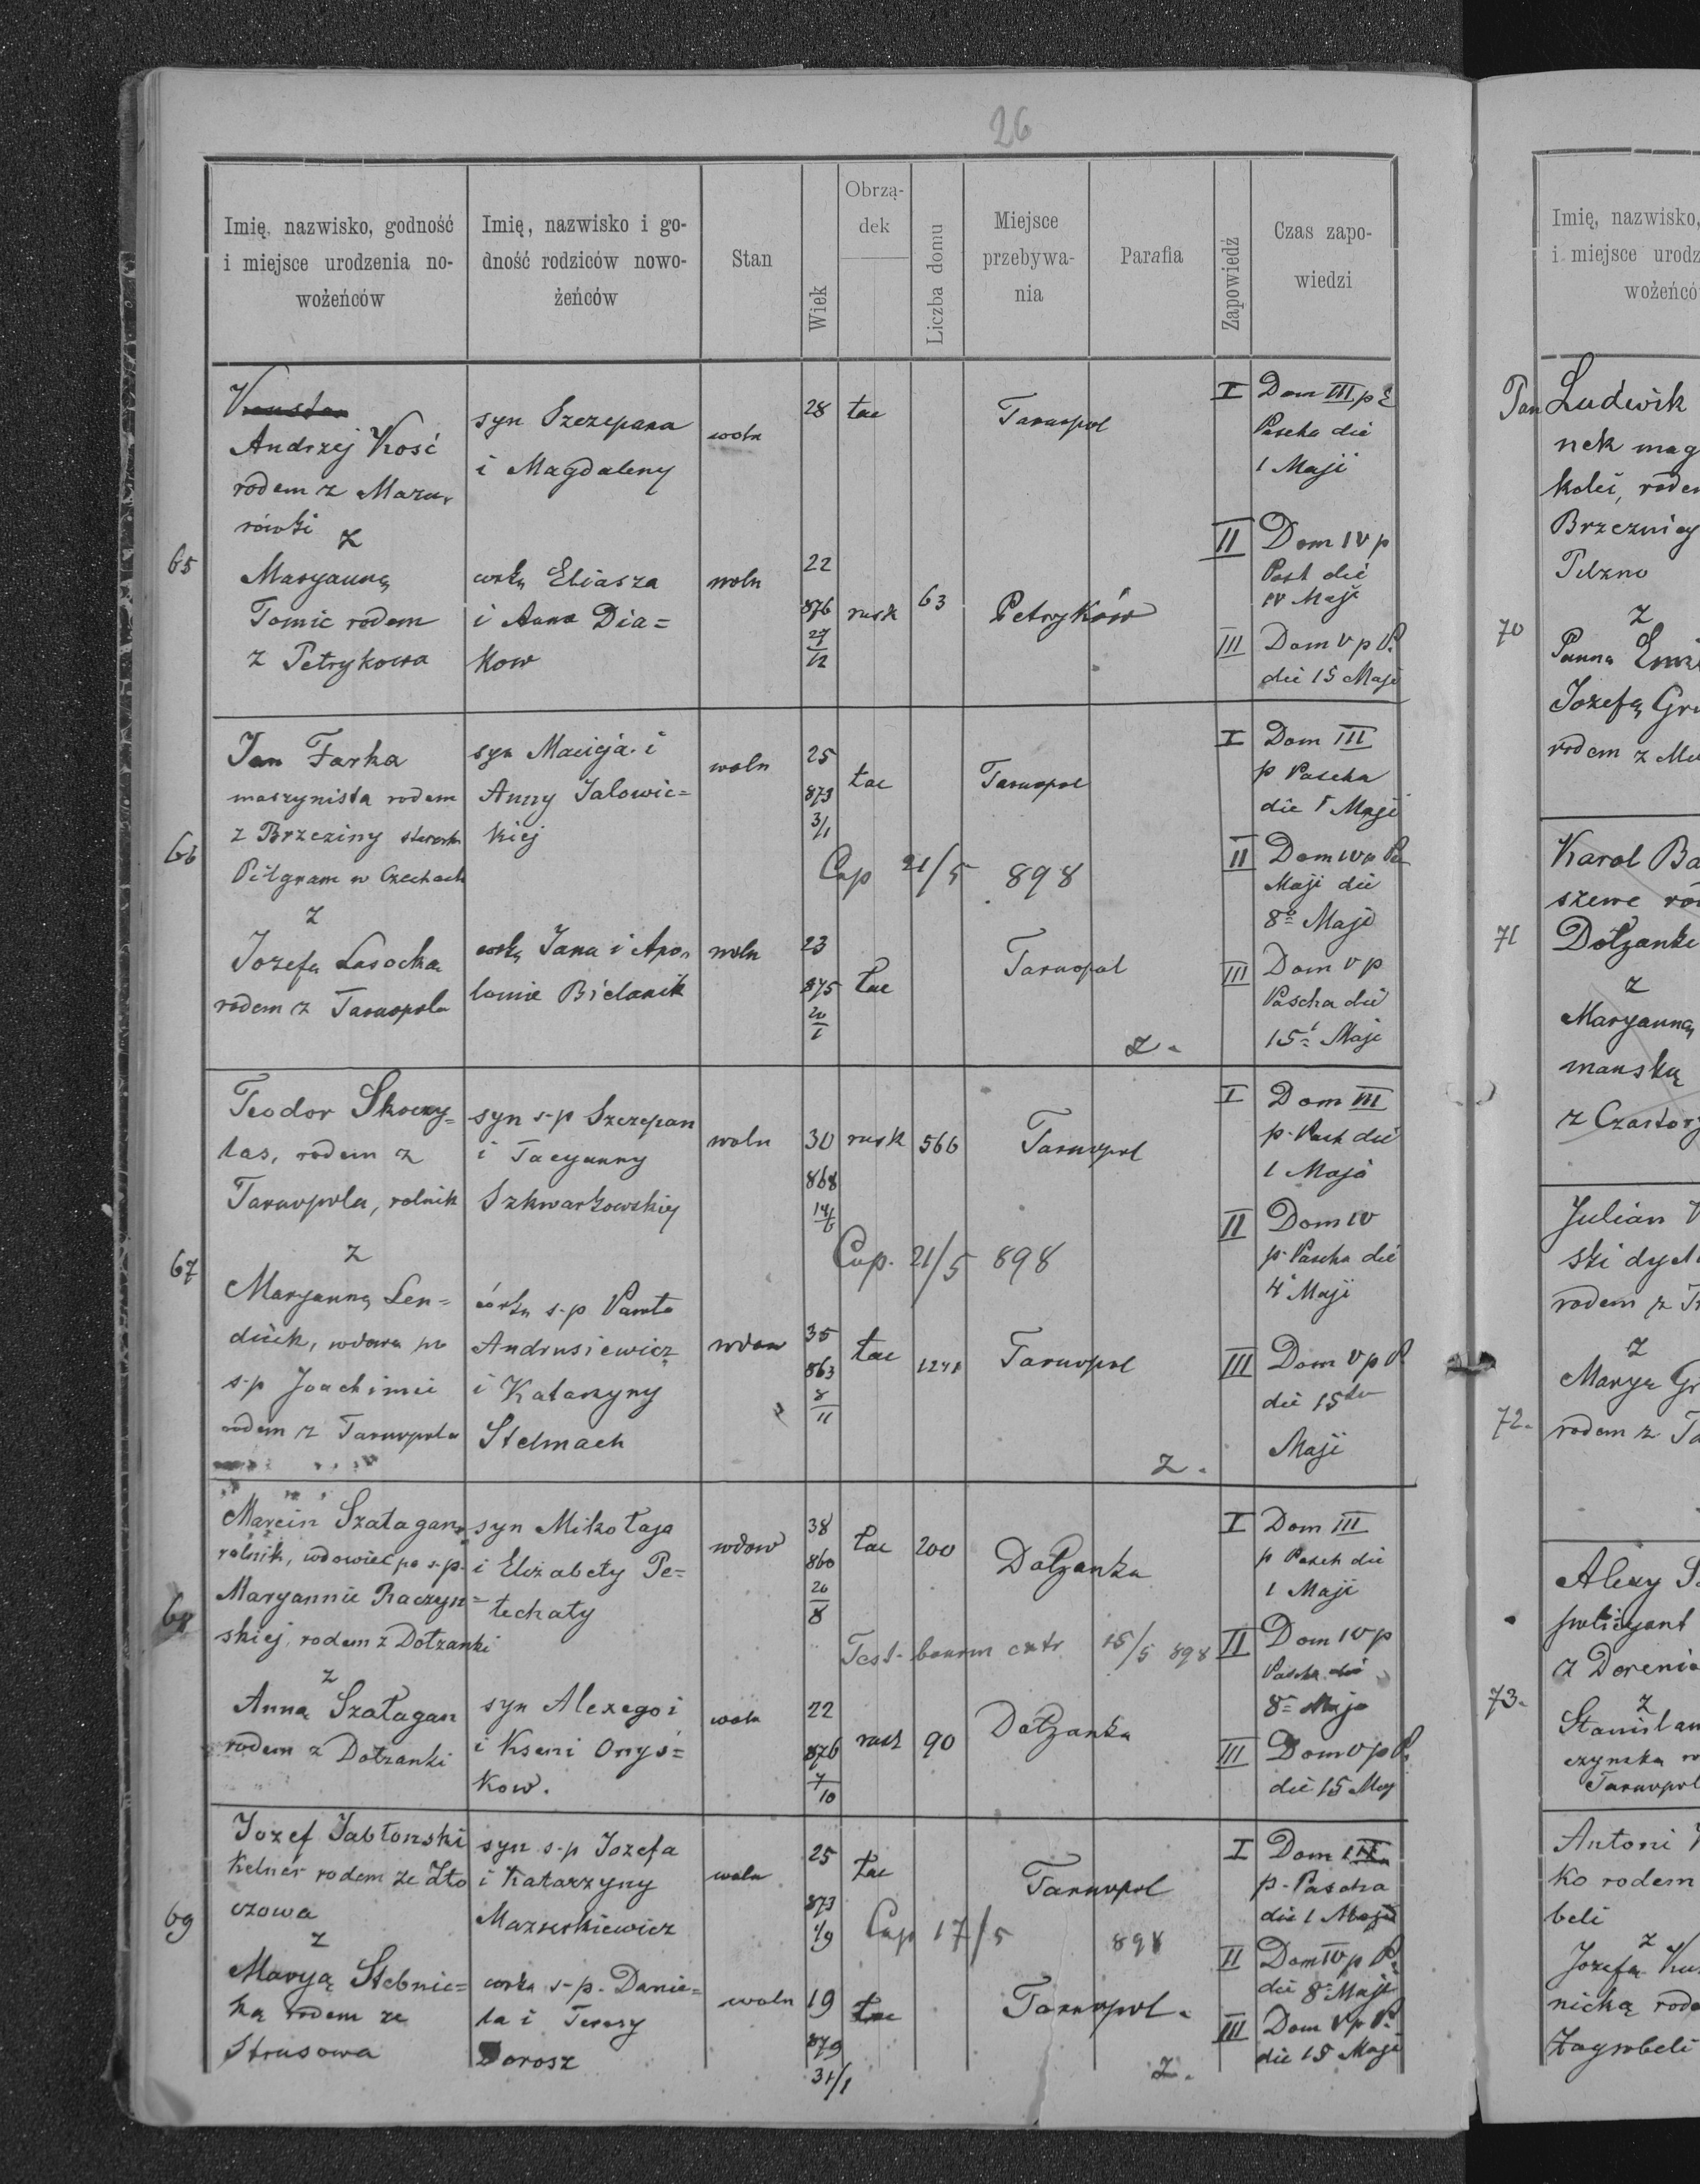 26
Imię, nazwisko, godność
i miejsce urodzenia no-
wożeńców
Imię, nazwisko i go-
dność rodziców nowo-
żeńców
Stan
Wiek
Obrzą-
dek
Liczba domu
Miejsce
przebywa-
nia
Parafia
Zapowiedź
Czas zapo-
wiedzi
65
Andrzej Kość
rodem z Mazu-
rówki
z
Maryanną
Tomic rodem
z Petrykowa
syn Szczepana
i Magdaleny
córką Eliasza
i Anna Dia=
kow
woln
woln
28
22
876
27
12
łac
rusk
63
Tarnopol
Petryków
I Dom III p
Pascha die
1 Maji
II Dom IV p
Past die
IV Maji
III Dom V p P.
die 15 Maji
66
Jan Farka
maszynista rodem
z Brzeziny
Pilgram w Czechach
z
Jozefą Lasocką
rodem z Tarnopola
syn Macieja i
Anny Jalowic=
kiej
córką Jana i Apo-
lonie Bielanik
woln
woln
25
873
3/1
23
875
20
1
łac
łac
Tarnopol
Cop 21/5 898
Tarnopol
z.
I Dom III
p Pascha
die 1 Maji
II Dom IV p Pa
Maji die
8 Maji
III Dom V p
Pascha die
15 Maji
67
Teodor Skoczy=
las, rodem z
Tarnopola, rolnik
z
Maryanną Len=
diuk, wdową po
s-p Joachimie
rodem z Tarnopola
syn s-p Szczepan
i Tacyanny
Szkwarkowskiej
córką s-p Pawła
Andrusiewicz
i Katarzyny
Stelmach
woln
wdow
30
868
14/6
35
863
8
11
rusk
łac
566
Tarnopol
Cop. 21/5 898
Tarnopol
z.
I Dom III
p. Pasch die
1 Maja
II Dom IV
p. Pascha die
4 Maji
III Dom V p P
die 15
Maji
68
Marcin Szałagan
rolnik, wdowiec po s-p.
Maryannie Raczyn=
skiej, rodem z Dołzanki
z
Anną Szałagan
rodem z Dołzanki
syn Mikołaja
i Elizabety Pe=
techaty
syn Alexego i
i Kseni Onys=
kow.
wdow
woln
38
860
20
8
22
876
7
10
łac
rusk
200
90
Dołzanka
Test. bannm extr 15/5 898
Dołzanka
I Dom III
p Pasch die
1 Maji
II Dom IV p
Pascha die
8 Maja
III Dom V p P.
die 15 May
69
Jozef Jabłonski
kelner rodem ze Zło
czowa
z
Maryą Stebnic=
ką rodem ze
Strusowa
syn s-p Jozefa
i Katarzyny
Mazurkiewicz
córka s-p. Danie=
la i Teresy
Dorosz
woln
woln
25
873
1/9
19
879
31/1
łac
łac
Tarnopol
Cop 17/5 898
Tarnopol.
z.
I Dom III
p. Pascha
die 1 Maji
II Dom IV p P.
die 8 Maji
III Dom V p P.
die 15 Maji
Imię, nazwisko,
i miejsce urodz
wożeńcó
70
Pan Ludwik
nek mag
kolei, rodem
Brzeznicy
Pilzno
z
Panna
Jozefą Gru
rodem z
71
Karol Ba
szewe
Dołzanki
z
Maryanną
manską
z Czartory
72.
Julian
ski
rodem z
z
Marya Gr
rodem z Ta
73.
Alexy
policyant
z
z
Stanisław
czynska
Tarnopol
Antoni
ko rodem
beli
z
Jozefa
nicką rode
Zagrobeli